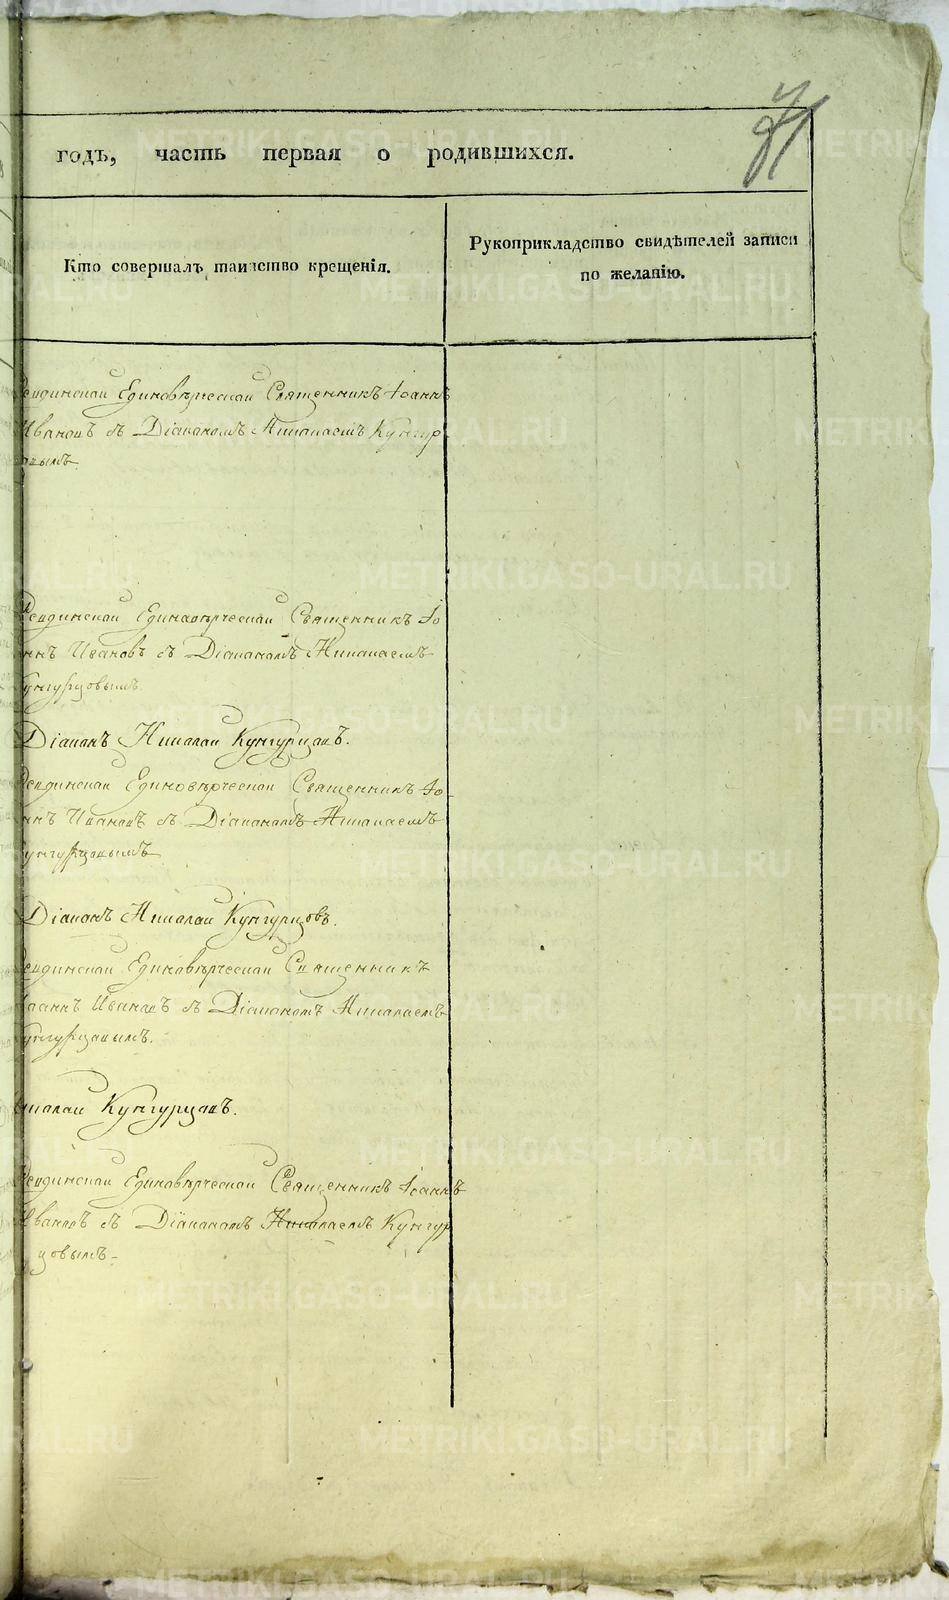 годъ, часть первая о родившихся.
Кто совершалъ таинство крещенія.
Рукоприкладство свидѣтелей записи
по желанію.
Ревдинскай Единовѣрческай Священникъ Іоаннъ
Ивановъ съ Діакономъ Николаемъ Кунгур-
цовымъ
Ревдинскай Единовѣрческай Священникъ Іо
аннъ Ивановъ съ Діакономъ Николаемъ
Кунгурцовымъ
Діаконъ Николай Кунгурцовъ.
Ревдинскай Единовѣрческай Священникъ Іо-
аннъ Ивановъ съ Діакономъ Николаемъ
Кунгурцовымъ
Діаконъ Николай Кунгурцовъ.
Ревдинскай Единовѣрческай Священникъ
Іоаннъ Ивановъ съ Діакономъ Николаемъ
Кунгурцовымъ.
Николай Кунгурцовъ.
Ревдинскай Единовѣрческай Священникъ Іоаннъ
Ивановъ съ Діакономъ Николаемъ Кунгур
цовымъ-
METRIKI.GASO-URAL.RU